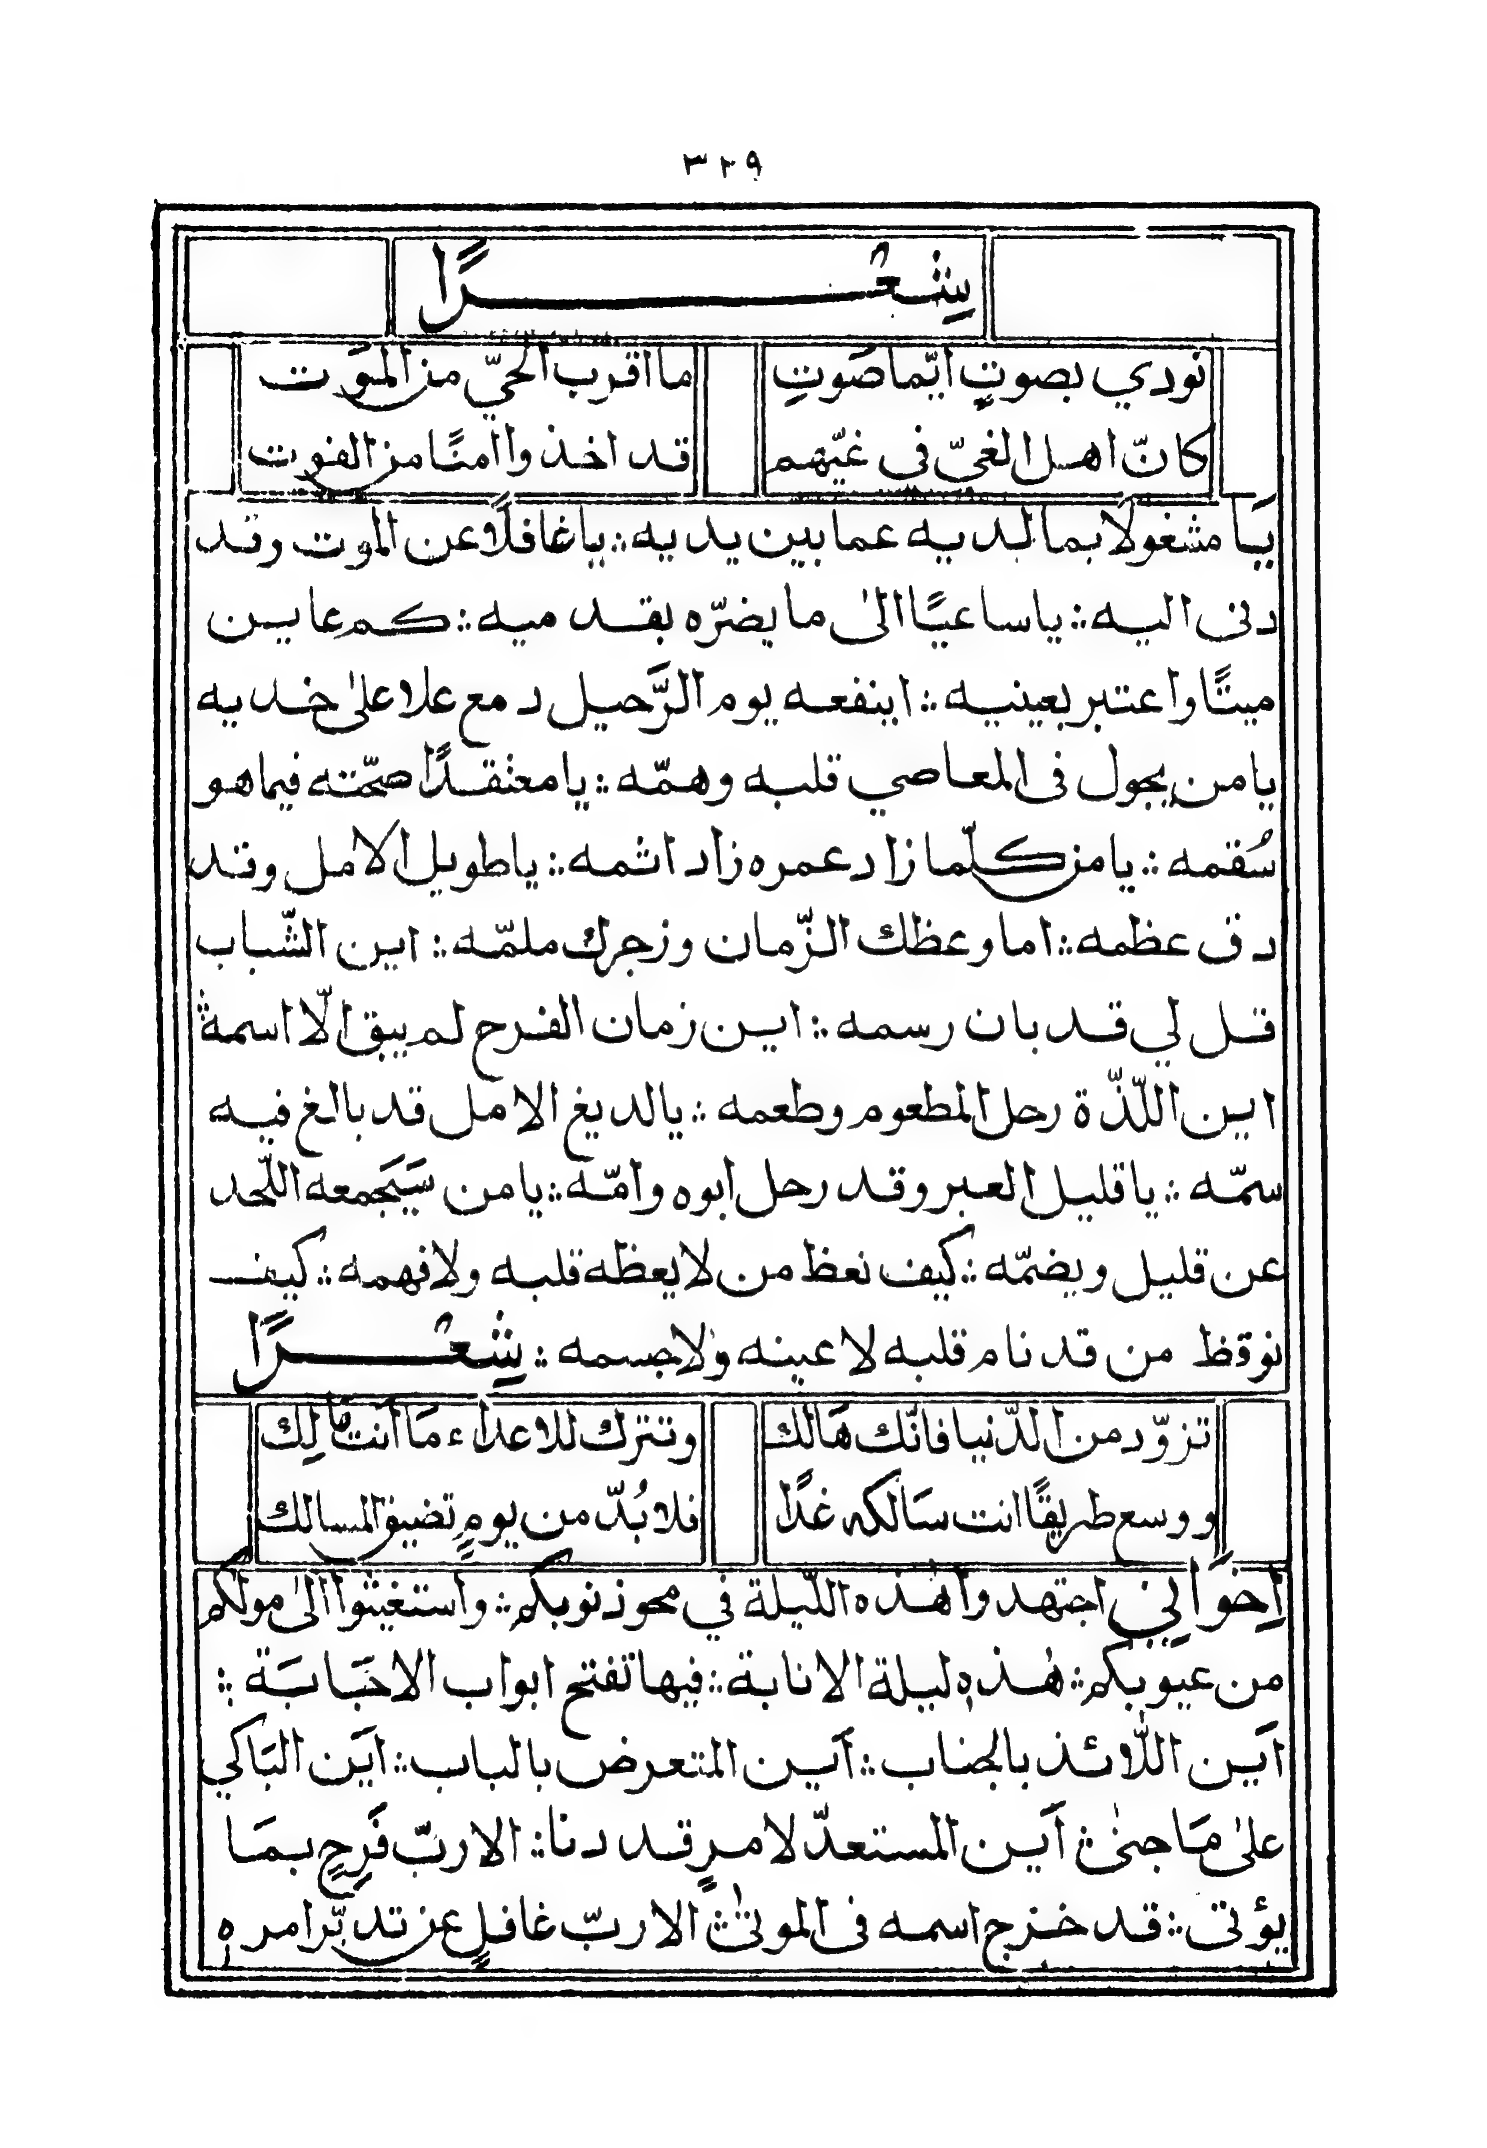 ٣٢٩
شِعْرًا
نودي بصوتٍ ايّما صَوتِ ما اقرب الحيّ من المَوت
كانّ اهل الغيّ في غيّهم قد اخذ وا امنًا من الفوت
يَا مشغولًا بما لديه عما بين يديه ؞ يا غافلًا عن الموت وقد
دنى اليه ؞ يا ساعيًا الىٰ ما يضرّه بقد ميه ؞ كم عاين
ميتًا وا عتبر بعينيه ؞ اينفعه يوم الرَّحيل د مع علا علىٰ خديه
يا من يجول فى المعاصي قلبه وهمّه ؞ يا معتقدًا صحّته فيما هو
سُقمه ؞ يا من كلّما زا د عمره زاد اثمه ؞ يا طويل الامل وقد
د ق عظمه ؞ اما وعظك الزّمان وزجرك ملمّه ؞ اين الشّباب
قل لي قد بان رسمه ؞ اين زمان الفرح لم يبق الّا اسمه
اين اللّذّة رحل المطعوم وطعمه ؞ يالديغ الامل قد بالغ فيه
سمّه ؞ يا قليل العبر وقد رحل ابوه وامّه ؞ يا من سَيَجمعه اللّحد
عن قليل ويضمّه ؞ كيف نعظ من لا يعظه قلبه ولا فهمه ؞ كيف
نوقظ من قد نام قلبه لا عينه ولا جسمه ؞ شِعْرًا
تزوّد من الدّنيا فانّك هَالك وتترك للاعداء مَا أنت مَالِك
ووسع طريقًا انت سَالكه غدًا فلا بُدّ من يومٍ تضيق المسالك
اِخوَانِي اجتهد وا هٰذه اللّيلة في محو ذنوبكم ؞ واستغيثوا الىٰ مولٰكم
من عيوبكم ؞ هٰذه ليلة الانابة ؞ فيها تفتح ابواب الاجَابَة ؞
اَين اللّائذ بالجناب ؞ اَين المتعرض بالباب ؞ اين البَاكي
علىٰ مَا جنىٰ ؞ اَين المستعدّ لامرٍ قد دنا ؞ الا ربّ فَرِحٍ بمَا
يؤتى ؞ قد خرج اسمه فى الموتىٰ ؞ الا ربّ غافلٍ عن تد بّر امره